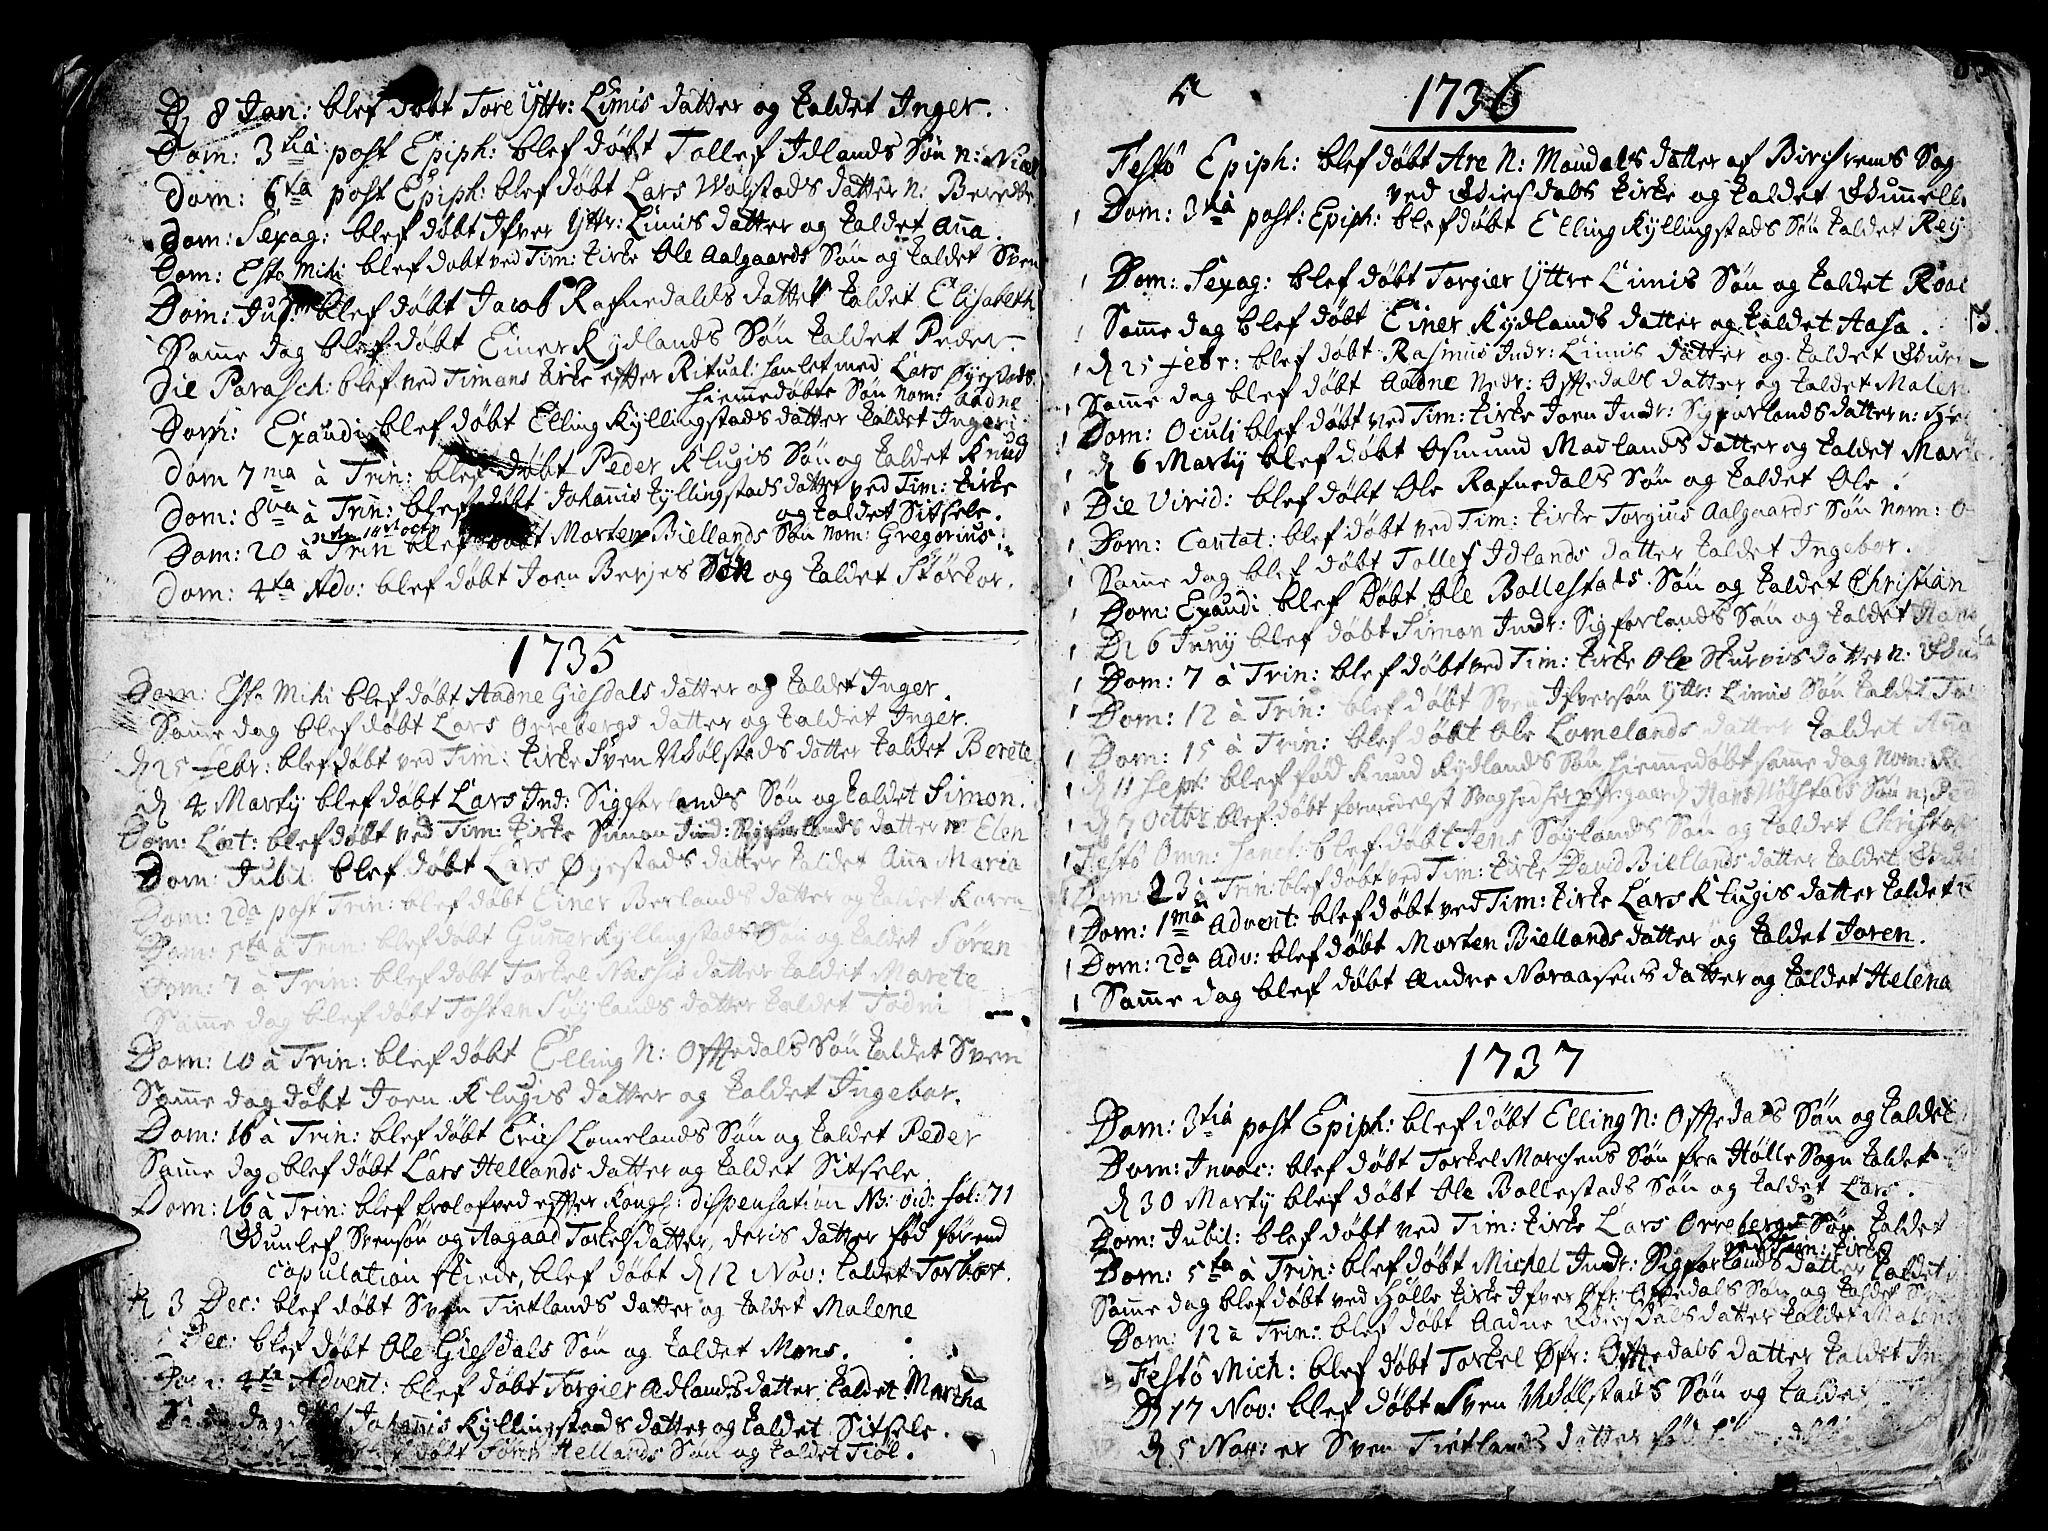 D. 8 Jan: blef døbt Tore Yttr: Limis datter og kaldet Inger.
Dom: 3tia post Epiph: blef døbt Tollef Idlands Søn n:
Dom: 6ta post Epiph: blef døbt Lars Wølstads datter n: Berette
Dom: Sexag: blef døbt Ifver Yttr: Limis datter og kaldet Ana.
Dom: Esto Mihi blef døbt ved Tim: kirke Ole Aalgaards Søn og kaldet Sven
Dom: Jud: blef døbt Jacob Rafnedals datter kaldet Elisabeth
Same dag blef døbt Einer Kydlands Søn kaldet Peder
Die Parasch: blef ved Timans kirke efter Ritual: handlet med Lars Øyestads
hiemmedøbte Søn Nom: Aadne
Dom: Exaudi blef døbt Elling Kyllingstads datter kaldet Ingeri
Dom 7ma à Trin: blef døbt Peder Klugis Søn og kaldet Knud
Dom: 8va à Trin: blef døbt Johannis Kyllingstads datter ved Tim: kirke
og kaldet Sitsele.
Dom: 20 à Trin blef døbt Morten Biellands Søn Nom: Gregorius
Dom: 4ta Adv: blef døbt Joen Berjes Søn og kaldet Størkor.
1735
Dom: Esto Mihi blef døbt Aadne Giesdals datter og kaldet Inger.
Same dag blef døbt Lars Orrebergs datter og kaldet Inger.
d. 25 Febr: blef døbt ved Tim: kirke Sven Wølstads datter kaldet Berete
d. 4 Martij blef døbt Lars Ind: Sigforlands Søn og kaldet Simon.
Dom: Læt: blef døbt ved Tim: kirke Simon Ind: Sigforlands datter N: Elen
Dom: Jubil: blef døbt Lars Øyestads datter kaldet Ana Maria
Dom: 2da post Trin: blef døbt Einer Berlands datter og kaldet Karen
Dom: 5ta à Trin: blef døbt Guner Kyllingstads Søn og kaldet Søren
Dom: 7 à Trin: blef døbt Torkel datter kaldet Marete
Same dag blef døbt Tosten Søylands datter kaldet Todni
Dom: 10 à Trin: blef døbt Elling N: Oftedals Søn kaldet Sven
Same dag døbt Joen Klugis datter og kaldet Ingebor.
Dom: 16 à Trin: blef døbt Erich Lomelands Søn og kaldet Peder
Same dag blef døbt Lars Hellands datter og kaldet Sitsele.
Dom: 16 à Trin: blef trolofved efter Kongl: dispensation NB: vid: fol: 71
Gunlef Svensøn og Aagaad Torkelsdatter, deris datter fød førend
copulation skiede, blef døbt d. 12 Nov: kaldet Torbor.
d. 3 Dec: blef døbt Sven Tietlands datter og kaldet Malene
Dec: blef døbt Ole Giesdals Søn og kaldet Mons.
Dom: 4ta Advent: blef døbt Torgier Adlands datter kaldet Martha
Same dag døbt Johannis Kyllingstads datter og kaldet Sitsele.
døbt Hellands Søn og kaldet Tiøl.
1736
Festo Epiph: blef døbt Are N: Maudals datter af Birchrems Sog
ved Giesdals kirke og kaldet Gunnell
Dom: 3tia post: Epiph: blef døbt Elling Kyllingstads Søn kaldet Rey
Dom: Sexag: blef døbt Torgier Yttre Limis Søn og kaldet Roal
Same dag blef døbt Einer Kydlands datter og kaldet Aasa.
d. 25 Febr: blef døbt Rasmus Indr: Limis datter og kaldet Guri
Same dag blef døbt Aadne Nedr: Oftedals datter og kaldet Malen
Dom: Oculi blef døbt ved Tim: kirke Joen Indr: Sigforlands datter n:
d. 6 Martij blef døbt Osmund Madlands datter og kaldet Mar
Die Virid: blef døbt Ole Rafnedals Søn og kaldet Ole.
Dom: Cantat: blef døbt ved Tim: kirke Torgius Aalgaards Søn Nom: O
Same dag blef døbt Tollef Idlands datter kaldet Ingebor.
Dom: Exaudi blef døbt Ole Bollestads Søn og kaldet Christian
D. 6 Junij blef døbt Simon Indr: Sigforlands Søn og kaldet Hans
Dom: 7 à Trin: blef døbt ved Tim: kirke Ole Skurvis datter n:
Dom: 12 à Trin: blef døbt Sven Ifversøn Yttr: Limis Søn kaldet
Dom: 15 à Trin: blef døbt Ole Lomelands datter kaldet Ana
d. 11 Sept: blef fød Knud Kydlands Søn hiemedøbt same dag Nom:
d. 7 Octbr blef døbt formedelst Svaghed Hans Wølstads Søn n: Ped
Festo Omn: Sanct: blef døbt Jens Søylands Søn og kaldet Christo
Dom: 23 à Trin: blef døbt ved Tim: kirke David Biellands datter kaldet
Dom: 1ma Advent: blef døbt ved Tim: kirke Lars Klugis datter kaldet
Dom: 2da Adv: blef døbt Morten Biellands datter og kaldet Joren.
Same dag blef døbt Andre Noraasens datter og kaldet Helena
1737
Dom: 3tia post Epiph: blef døbt Elling N: Oftedals Søn og kaldet
Dom: Invoc: blef døbt Torkel Marchens Søn fra Hølle Sogn kaldet
d. 30 Martij blef døbt Ole Bollestads Søn og kaldet Lars.
Dom: Jubil: blef døbt ved Tim: kirke Lars Orrebergs Søn kaldet
ved Tim: kirke
Dom: 5ta à Trin: blef døbt Michel Indr: Sigforlands datter kaldet
Same dag blef døbt ved Hølle kirke Ifver Øfr: Oftedals Søn og kaldet
Dom: 12 à Trin: blef døbt Aadne Giesdals datter kaldet Malen
Festo Mich: blef døbt Torkel Øfr: Oftedals datter kaldet In
D. 17 Nov: blef døbt Sven Wølstads Søn og kalde
d. 5 Nov: er Sven Tietlands datter fød